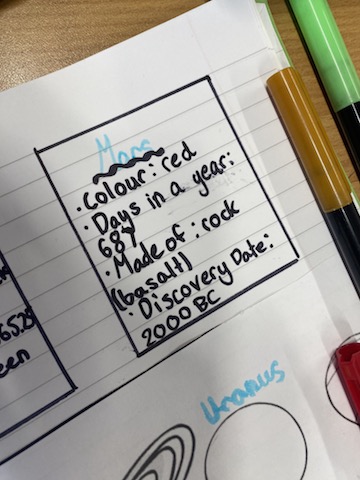 Mars
· Colour: red
· Days in a year:
687
· Made of: rock
(basalt)
· Discovery Date:
2000 BC
65.25
een
Uranus